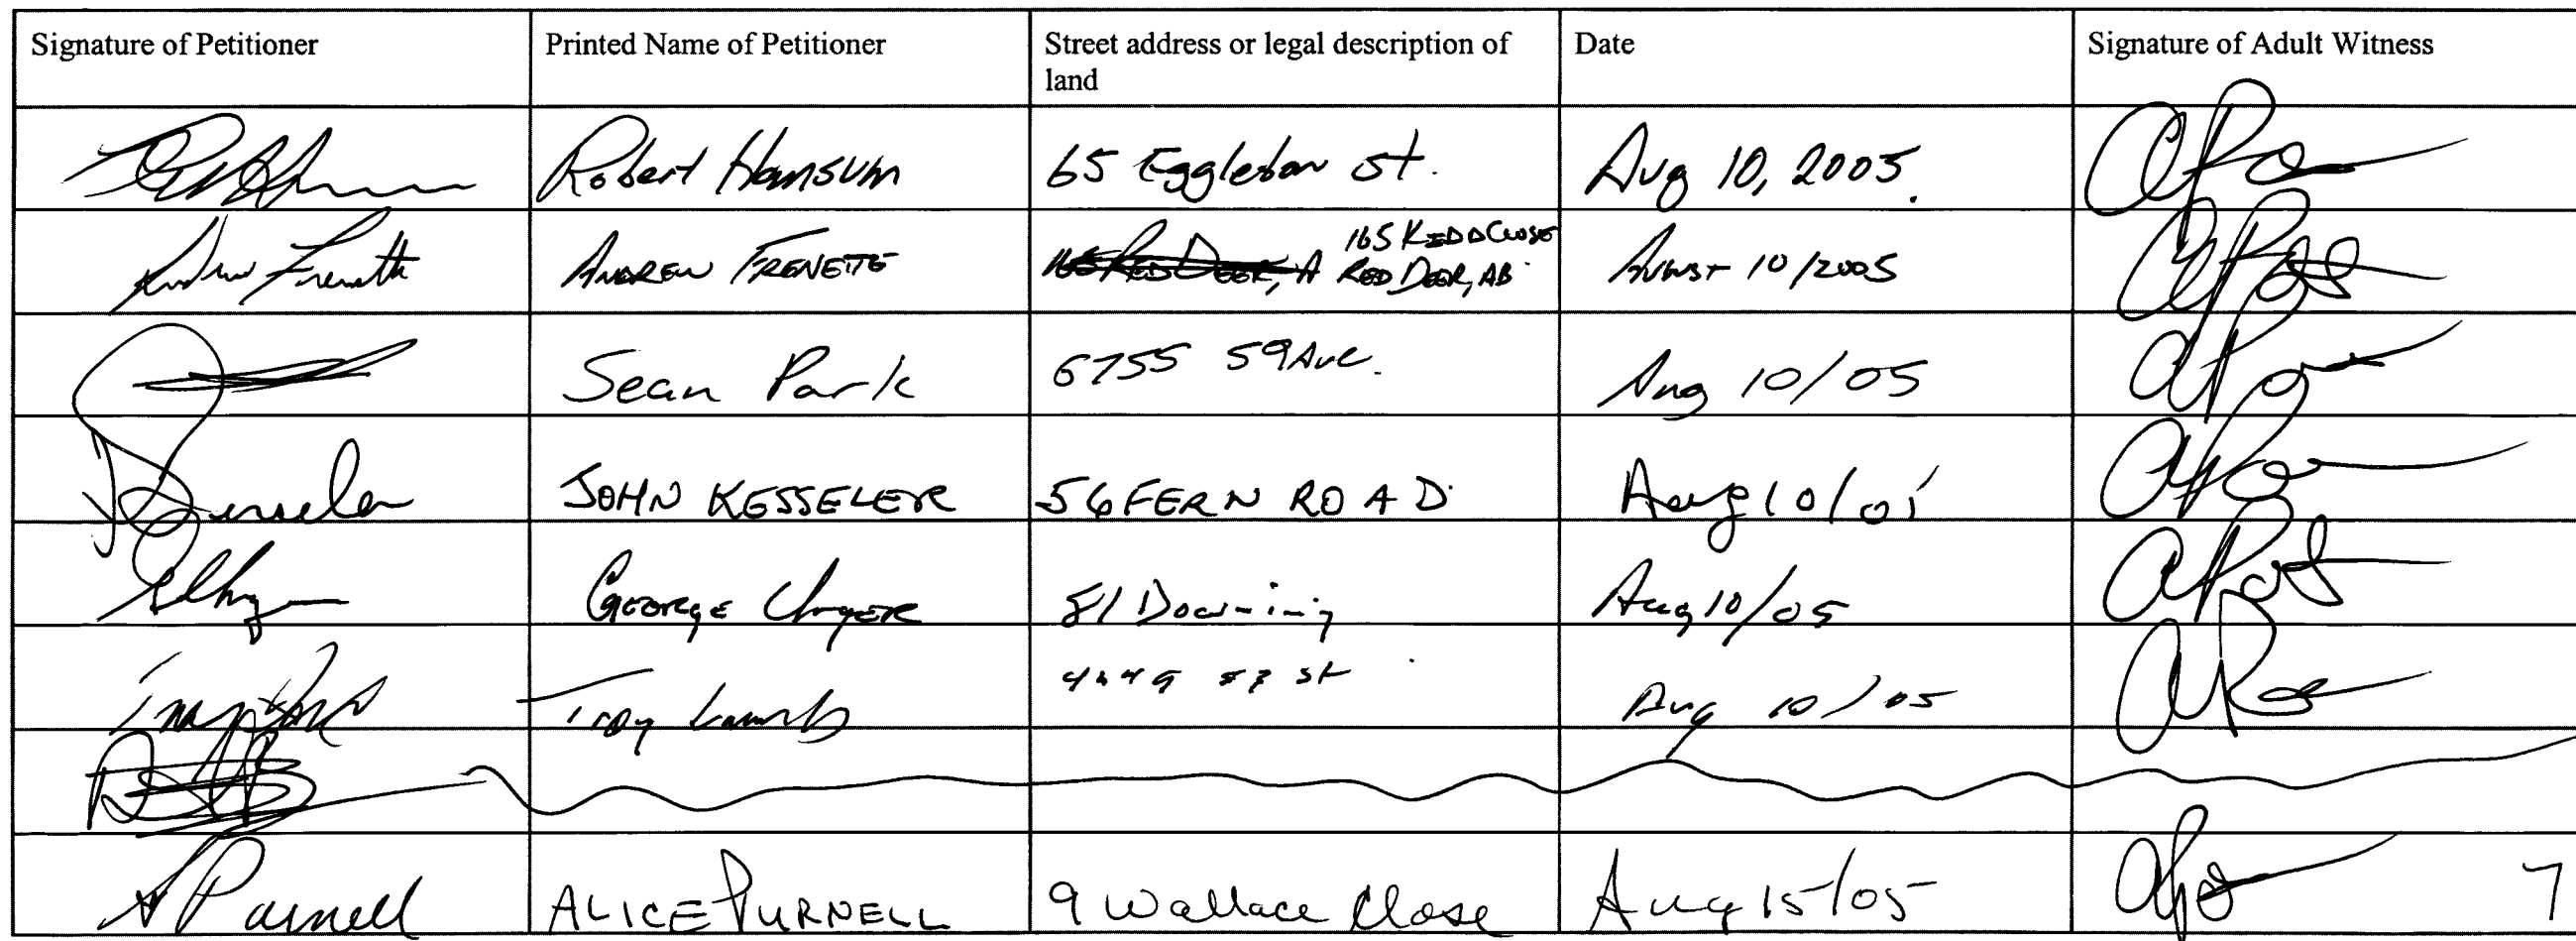 Signature of Petitioner Printed Name of Petitioner Street address or legal description of land Date Signature of Adult Witness
Robert Hamsum 65 Eggleton St. Aug 10, 2005.
Andrew Frenette ANDREW FRENETTE 165 KIDD CLOSE RED DEER, AB August 10/2005
Sean Park 6755 59 Ave. Aug 10/05
JOHN KESSELER 56 FERN ROAD Aug 10/05
GEORGE 81 Downing Aug 10/05
Troy Lamb St Aug 10/05
A Purnell ALICE PURNELL 9 Wallace Close Aug 15/05 7